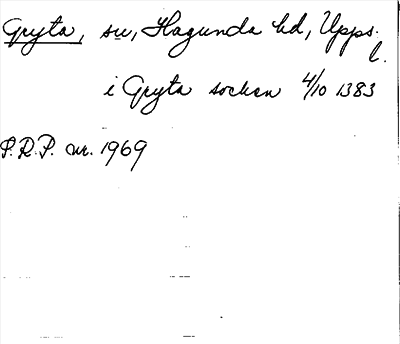 Gryta, sn, Hagunda hd, Upps.
l.
i Gryta socken 4/10 1383
P.R.P. nr. 1969